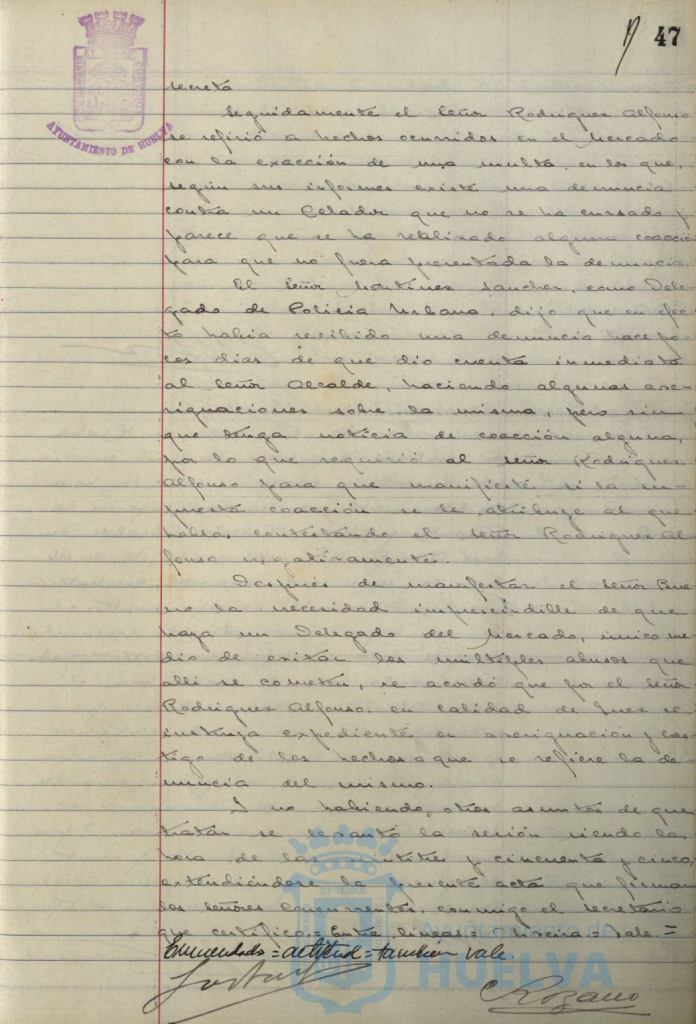 47
AYUNTAMIENTO DE HUELVA
secreta
Seguidamente el Señor Rodriguez Alfonso
se refirió a hechos ocurridos en el Mercado
con la exacción de una multa, en los que,
según sus informes existe una denuncia
contra un Celador que no se ha cursado y
parece que se ha realizado alguna coacción
para que no fuera presentada la denuncia.
El Señor Martinez Sanchez, como Dele-
gado de Policia Urbana, dijo que en efec-
to habia recibido una denuncia hace po-
cos dias de que dio cuenta inmediata
al Señor Alcalde, haciendo algunas ave-
riguaciones sobre la misma, pero sin
que tenga noticia de coacción alguna,
por lo que requirió al Señor Rodriguez
Alfonso para que manifieste si la su-
puesta coacción se le atribuye al que
habla, contestando el Señor Rodriguez Al
fonso negativamente.
Despues de manifestar el Señor
no la necesidad imprescindible de que
haya un Delegado del Mercado, unico me
dio de evitar los multiples abusos que
alli se cometen, se acordó que por el Señor
Rodriguez Alfonso, en calidad de Juez se
instruya expediente en averiguación y cas
tigo de los hechos a que se refiere la de-
nuncia del mismo.
Y no habiendo, otros asuntos de que
tratar se levantó la sesión siendo la
hora de las veintitres y cincuenta y cinco,
extendiéndose la presente acta que firman
los señores concurrentes, conmigo el secretario
que certifico.= Entre lineas = = vale.=
Enmendado = actitud = también vale.
Rozano
Ayuntamiento de
HUELVA